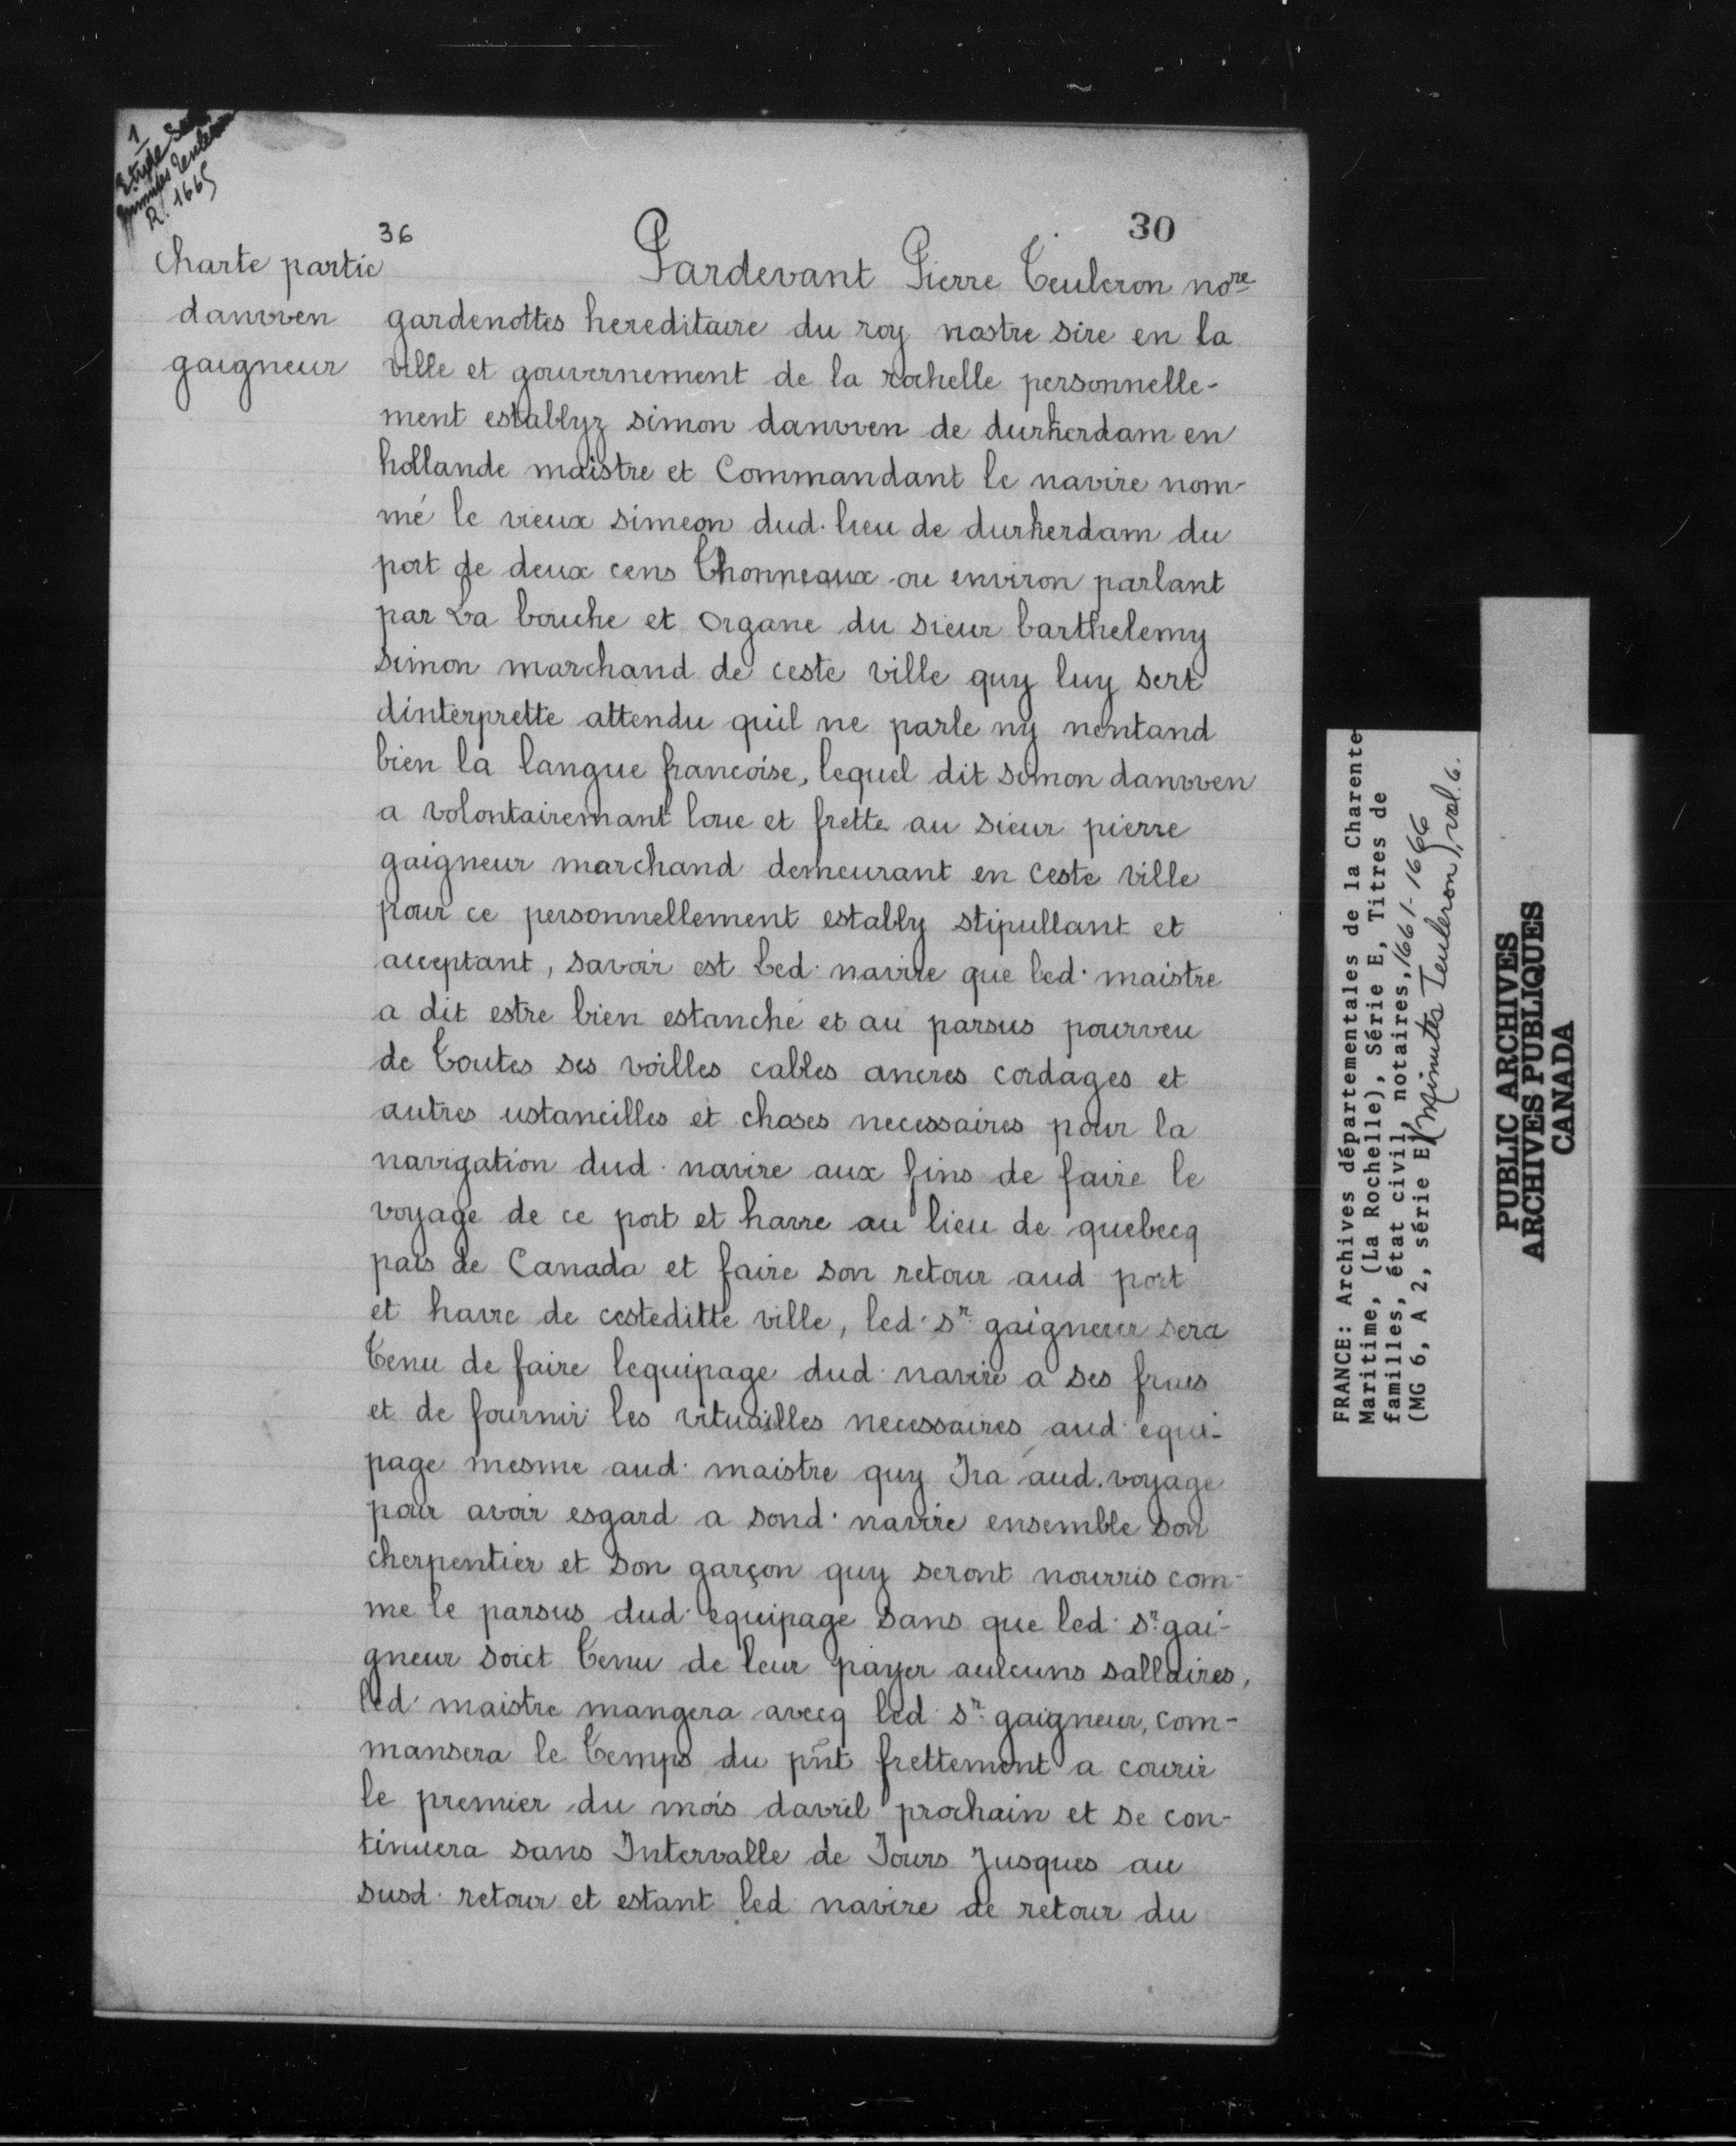 1
Etude Sa
minutes Teuleron
R. 1665
36
30
Charte partie
danwen
gaigneur
Pardevant Pierre Teuleron nore
gardenottes hereditaire du roy nostre sire en la
ville et gouvernement de la rochelle personnelle-
ment establyz simon danwen de durkerdam en
hollande maistre et Commandant le navire nom-
mé le vieux simeon dud. lieu de durkerdam du
port de deux cens Thonneaux ou environ parlant
par La bouche et Organe du sieur barthelemy
simon marchand de ceste ville quy luy sert
dinterprette attendu quil ne parle ny nentand
bien la langue francoise, lequel dit simon danwen
a volontairemant loue et frette au sieur pierre
gaigneur marchand demeurant en ceste ville
pour ce personnellement estably stipullant et
acceptant, savoir est Led. navire que led. maistre
a dit estre bien estanché et au parsus pourveu
de Toutes ses voilles cables ancres cordages et
autres ustancilles et choses necessaires pour la
navigation dud. navire aux fins de faire le
voyage de ce port et havre au lieu de quebecq
pais de Canada et faire son retour aud port
et havre de cesteditte ville, led. sr gaigneur sera
Tenu de faire lequipage dud. navire a ses frais
et de fournir les vituailles necessaires aud. equi-
page mesme aud. maistre quy Ira aud. voyage
pour avoir esgard a sond. navire ensemble son
cherpentier et son garçon quy seront nourris com-
me le parsus dud. equipage sans que led. sr. gai-
gneur soict Tenu de leur payer aulcuns sallaires,
led. maistre mangera avecq led. sr. gaigneur, com-
mansera le Temps du pñt frettement a courir
le premier du mois davril prochain et se con-
tinuera sans Intervalle de Jours Jusques au
susd. retour et estant led navire de retour du
FRANCE: Archives départementales de la Charente
Maritime, (La Rochelle), Série E, Titres de
familles, état civil, notaires, 1661-1666
(MG 6, A 2, série E) (Minutes Teuleron), vol. 6.
PUBLIC ARCHIVES
ARCHIVES PUBLIQUES
CANADA